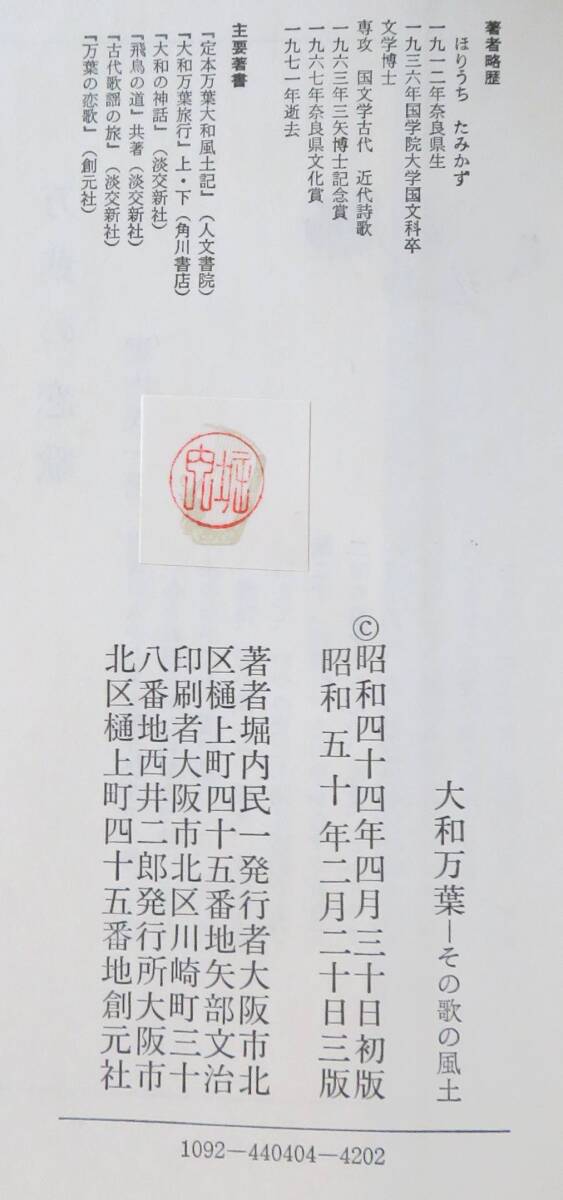 著者略歴
ほりうち たみかず
一九一二年奈良県生
一九三六年国学院大学国文科卒
文学博士
専攻 国文学古代 近代詩歌
一九六三年三矢博士記念賞
一九六七年奈良県文化賞
一九七一年逝去
主要著書
『定本万葉大和風土記』(人文書院)
『大和万葉旅行』上・下(角川書店)
『大和の神話』(淡交新社)
『飛鳥の道』共著(淡交新社)
『古代歌謡の旅』(淡交新社)
『万葉の恋歌』(創元社)
大和万葉―その歌の風土
©昭和四十四年四月三十日初版
昭和五十年二月二十日三版
著者堀内民一発行者大阪市北
区樋上町四十五番地矢部文治
印刷者大阪市北区川崎町三十
八番地西井二郎発行所大阪市
北区樋上町四十五番地創元社
1092―440404―4202